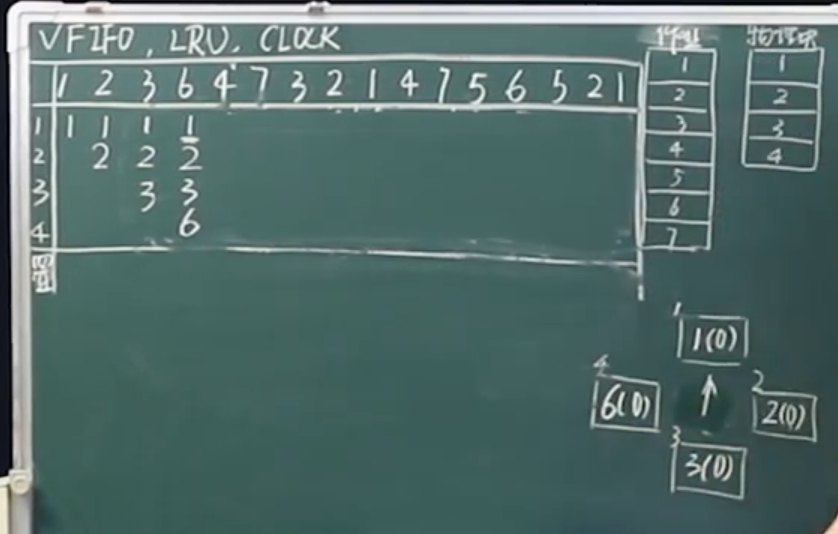 √FIFO, LRU, CLOCK
1 2 3 6 4 7 3 2 1 4 7 5 6 5 2 1
1 1 1 1 1
2 2 2 2
3 3 3
4 6
置
作业
1
2
3
4
5
6
7
物理块
1
2
3
4
1
1(0)
4
6(0)
2
2(0)
3
3(0)